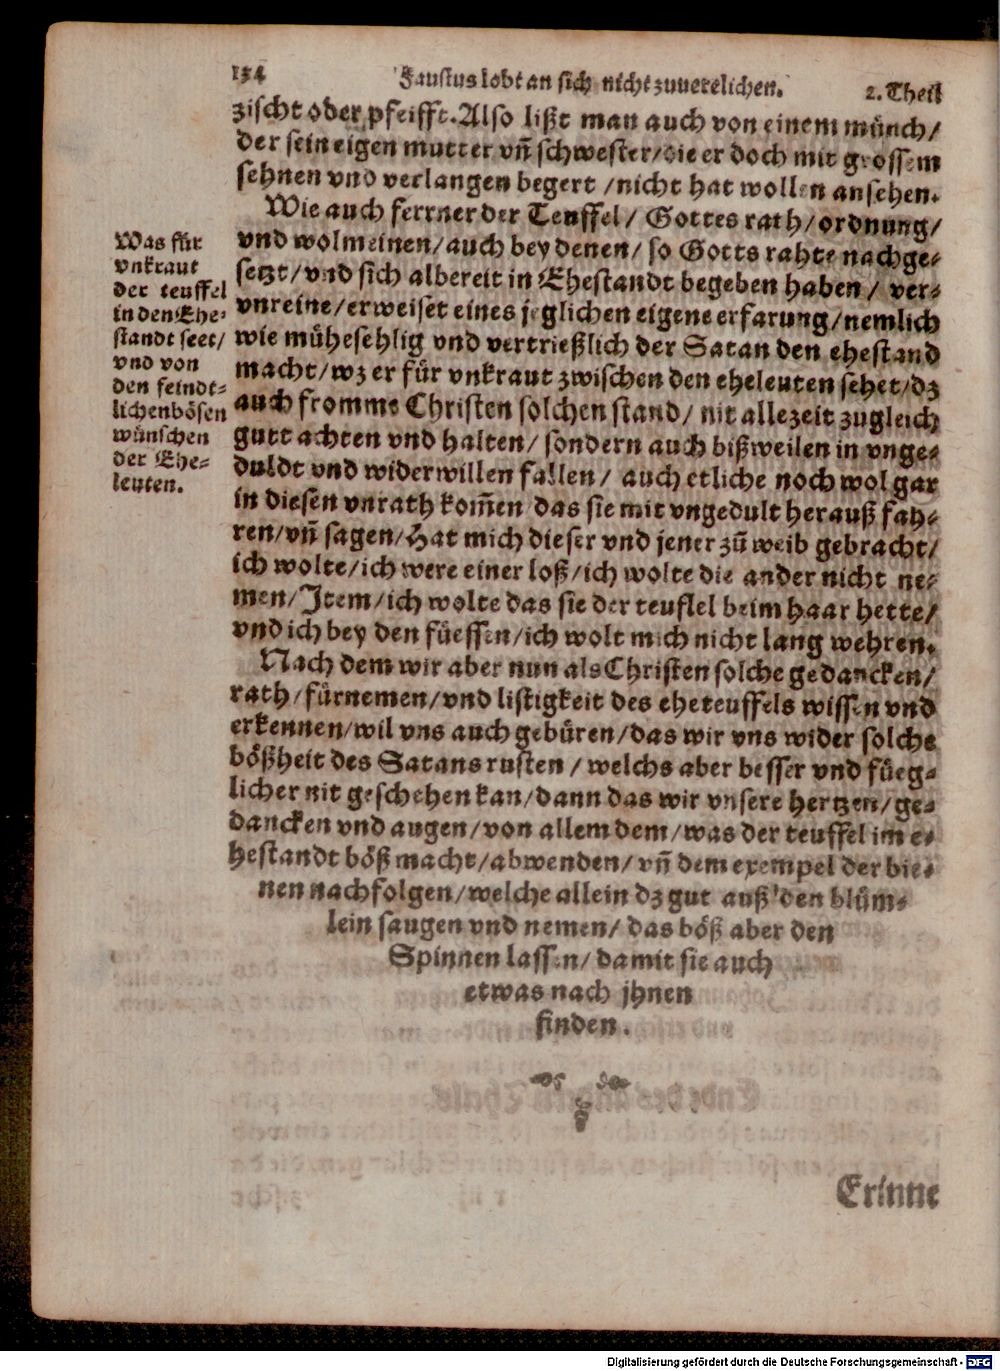 134 Faustus lobt an sich nicht zuuerelichen. 2. Theil
zischt oder pfeifft. Also lißt man auch von einem münch/
der sein eigen mutter vn̄ schwester/die er doch mit grossem
sehnen vnd verlangen begert /nicht hat wollen ansehen.
Wie auch ferrner der Teuffel/ Gottes rath/ordnung/
vnd wolmeinen/auch bey denen/ so Gotts rahte nachge-
setzt/vnd sich albereit in Ehestandt begeben haben/ ver-
vnreine/erweiset eines jeglichen eigene erfarung/nemlich
wie mühesehlig vnd vertrießlich der Satan den ehestand
macht/wz er für vnkraut zwischen den eheleuten sehet/dz
auch fromme Christen solchen stand/ nit allezeit zugleich
gutt achten vnd halten/ sondern auch bißweilen in vnge-
duldt vnd widerwillen fallen/ auch etliche noch wol gar
in diesen vnrath kom̄en das sie mit vngedult herauß fah-
ren/vn̄ sagen/Hat mich dieser vnd jener zū weib gebracht/
ich wolte/ich were einer loß/ich wolte die ander nicht ne-
men/Item/ich wolte das sie der teuflel beim haar hette/
vnd ich bey den füessen/ich wolt mich nicht lang wehren.
Nach dem wir aber nun als Christen solche gedancken/
rath/fürnemen/vnd listigkeit des eheteuffels wissen vnd
erkennen/wil vns auch gebüren/das wir vns wider solche
bößheit des Satans rusten / welchs aber besser vnd füeg-
licher nit geschehen kan/dann das wir vnsere hertzen/ge-
dancken vnd augen/von allem dem/was der teuffel im e-
hestandt böß macht/abwenden/vn̄ dem exempel der bie-
nen nachfolgen/welche allein dz gut auß den blüm-
lein saugen vnd nemen/ das böß aber den
Spinnen lassen/damit sie auch
etwas nach jhnen
finden.
Erinne
Was für
vnkraut
der teuffel
in den Ehe-
standt seet/
vnd von
den feindt-
lichen bösen
wünschen
der Ehe-
leuten.
Digitalisierung gefördert durch die Deutsche Forschungsgemeinschaft - DFG